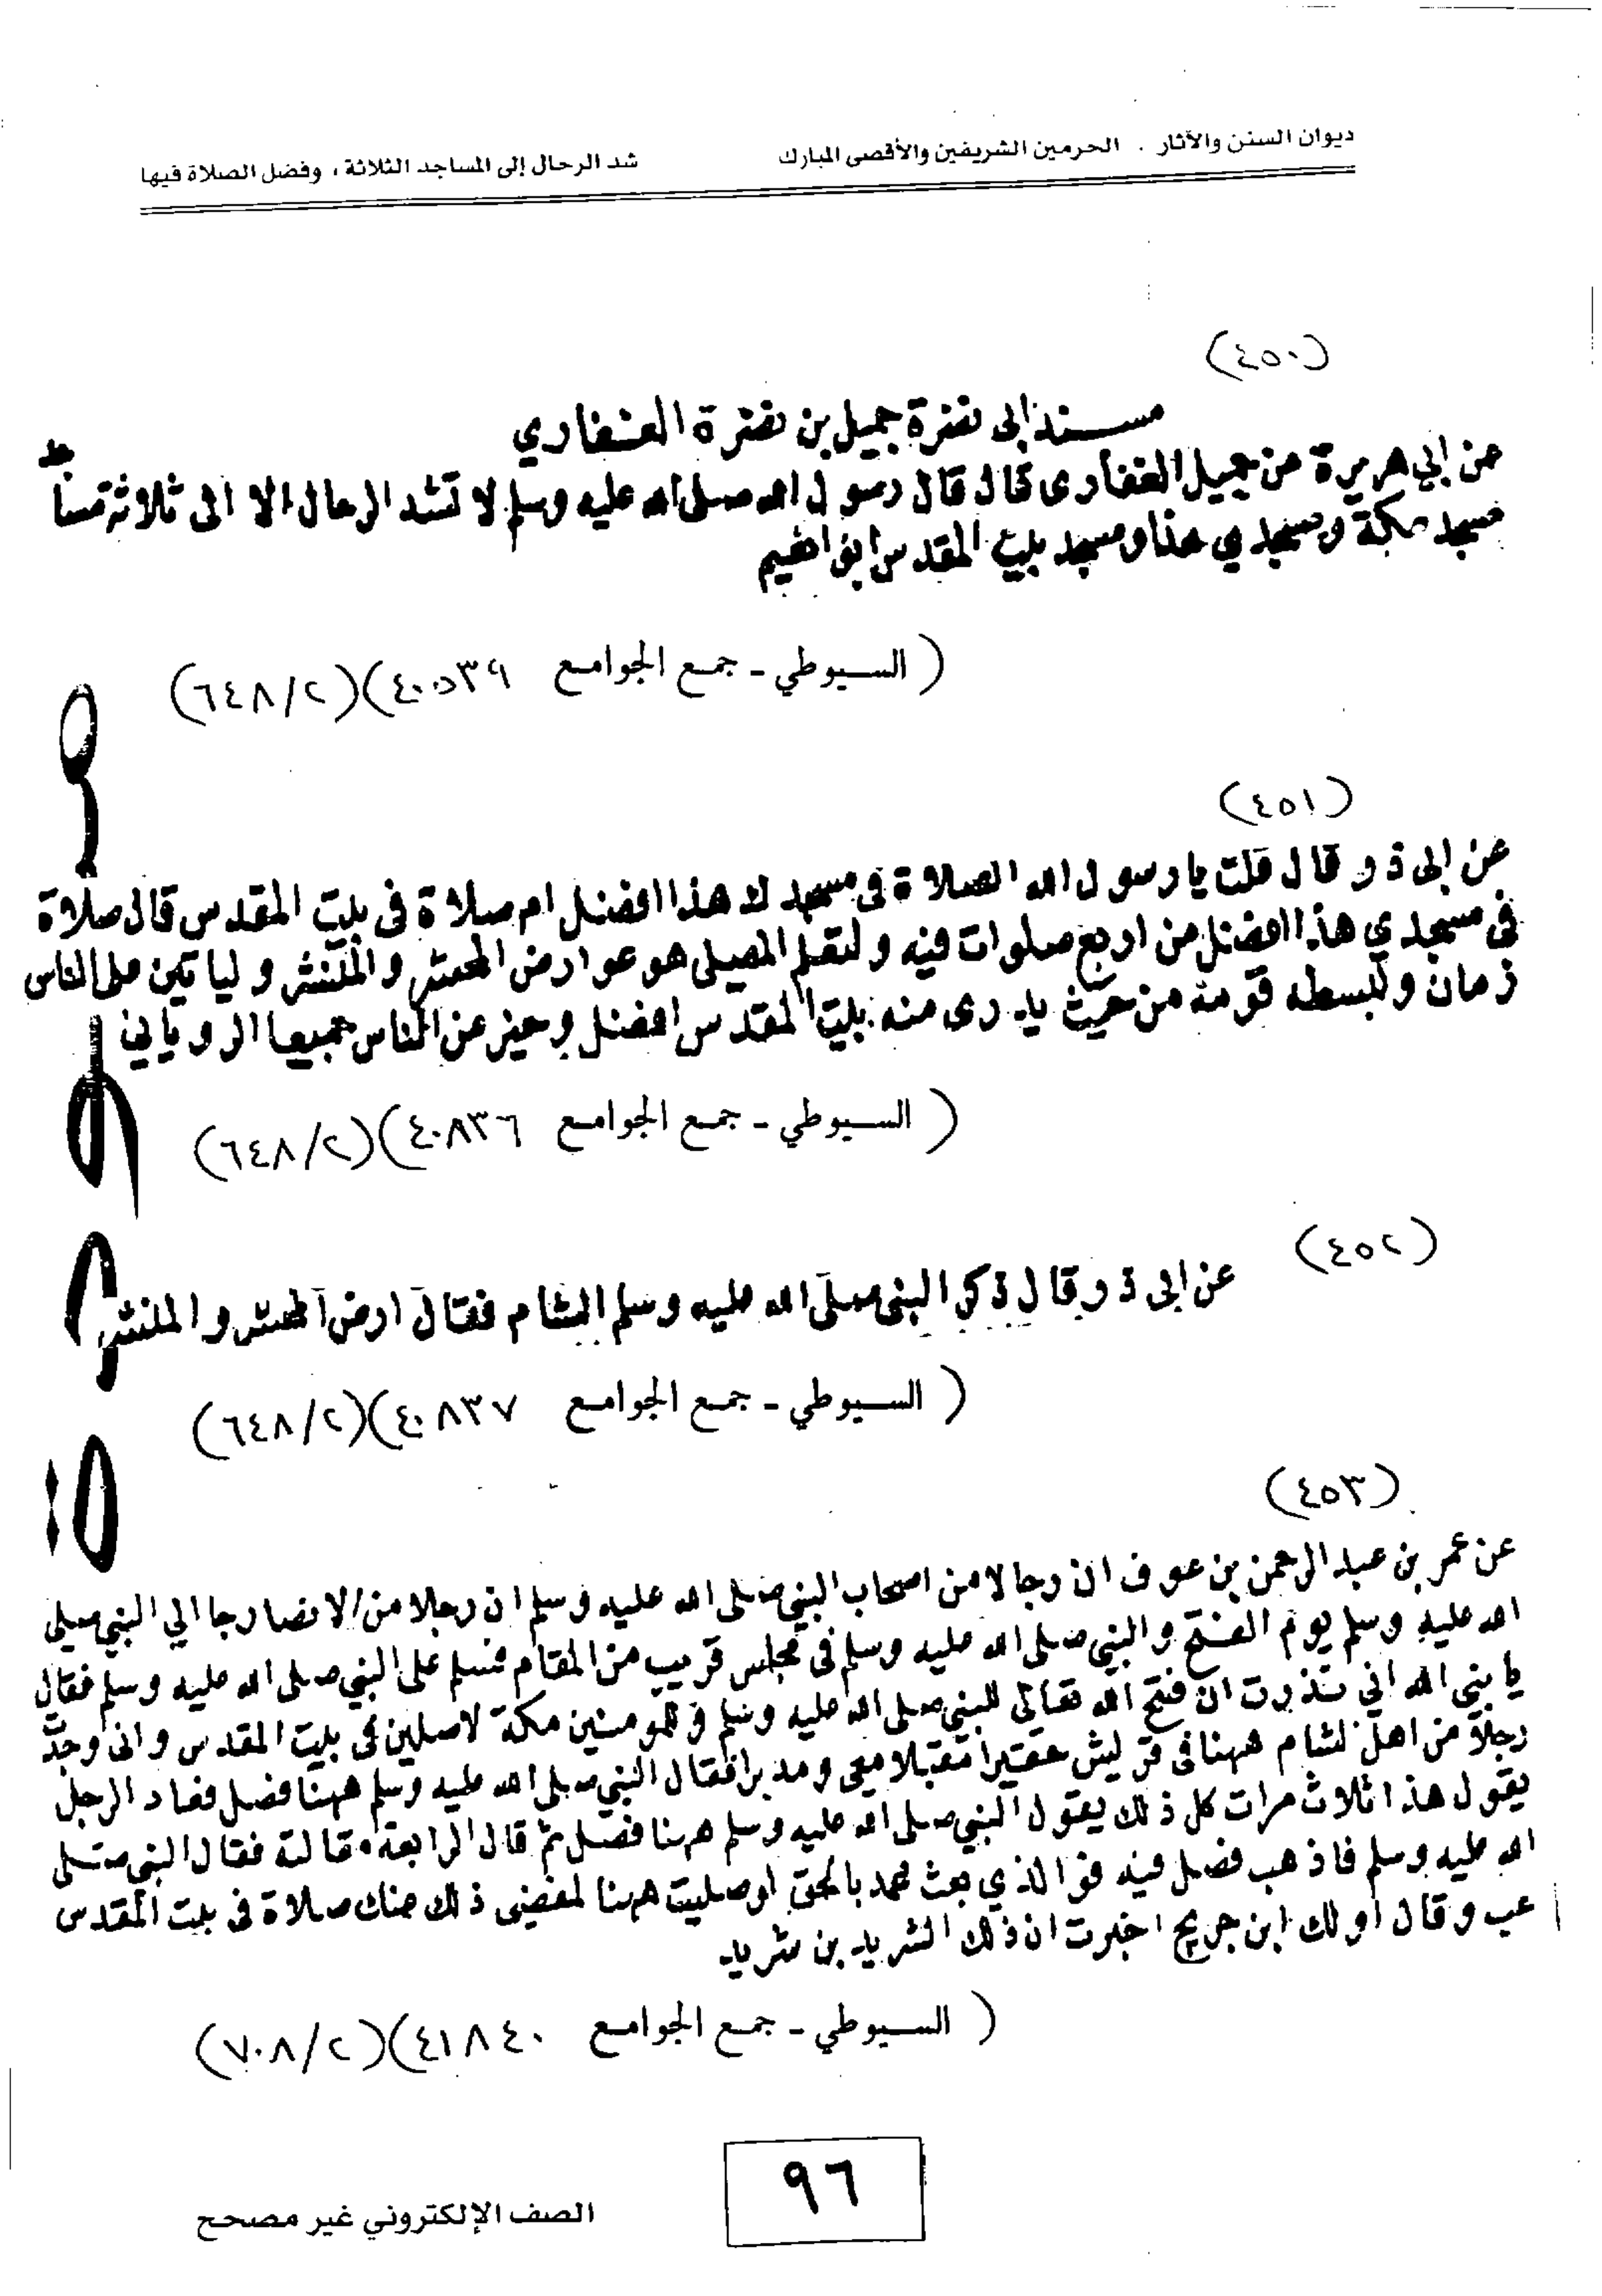 ديوان السنن والآثار . الحرمين الشريفين والأقصى المبارك
شد الرحال إلى المساجد الثلاثة ، وفضل الصلاة فيها
(٤٥٠)
مسند ابى نضرة جميل بن نضرة الغفاري
عن ابي هريرة عن جميل الغفارى قال قال رسول الله صلى الله عليه وسلم لا تشد الرحال الا الى ثلاثة
مسجد مكة ومسجدي هذا ومسجد بيت المقدس ابو نعيم
(السيوطي - جمع الجوامع ٤٠٠٥٣٩)(٦٤٨/٢)
(٤٥١)
عن ابى ذر قال قلت يا رسول الله الصلاة فى مسجدك هذا افضل ام صلاة فى بيت المقدس قال صلاة
فى مسجدي هذا افضل من اربع صلوات فيه ولنعم المصلى هو ارض المحشر والمنشر وليا تين على الناس
زمان ولبسطه قوسه من حيث يرى منه بيت المقدس افضل وخير من الناس جميعا الرويانى
(السيوطي - جمع الجوامع ٤٠٨٣٦)(٦٤٨/٢)
(٤٥٢)
عن ابى ذر قال ذكر النبى صلى الله عليه وسلم الشام فقال ارض المحشر والمنشر
(السيوطي - جمع الجوامع ٤٠٨٣٧)(٦٤٨/٢)
(٤٥٣)
عن عمر بن عبد الرحمن بن عوف ان رجالا من اصحاب النبي صلى الله عليه وسلم ان رجلا من الانصار جا الي النبي صلى
الله عليه وسلم يوم الفتح والنبي صلى الله عليه وسلم فى مجلس قريب من المقام فسلم على النبي صلى الله عليه وسلم فقال
يا نبى الله اني نذرت ان فتح الله تعالى للنبي صلى الله عليه وسلم والمومنين مكة لاصلين فى بيت المقدس وانى وجدت
رجلا من اهل الشام ههنا فى قريش خفيرا مقبلا معى ومدبرا فقال النبي صلى الله عليه وسلم ههنا فصل فعاد الرجل
يقول هذا ثلاث مرات كل ذلك يقول النبي صلى الله عليه وسلم ههنا فصل ثم قال الرابعة مقالته فقال النبي صلى
الله عليه وسلم فاذهب فصل فيه فوالذي بعث محمد بالحق لو صليت ههنا لقضى ذلك عنك صلاة فى بيت المقدس
عب وقال اولك ابن جريج اخبرت ان ذلك الشريد بن سريد
(السيوطي - جمع الجوامع ٤١٨٤٠)(٧٠٨/٢)
٩٦
الصف الإلكتروني غير مصحح